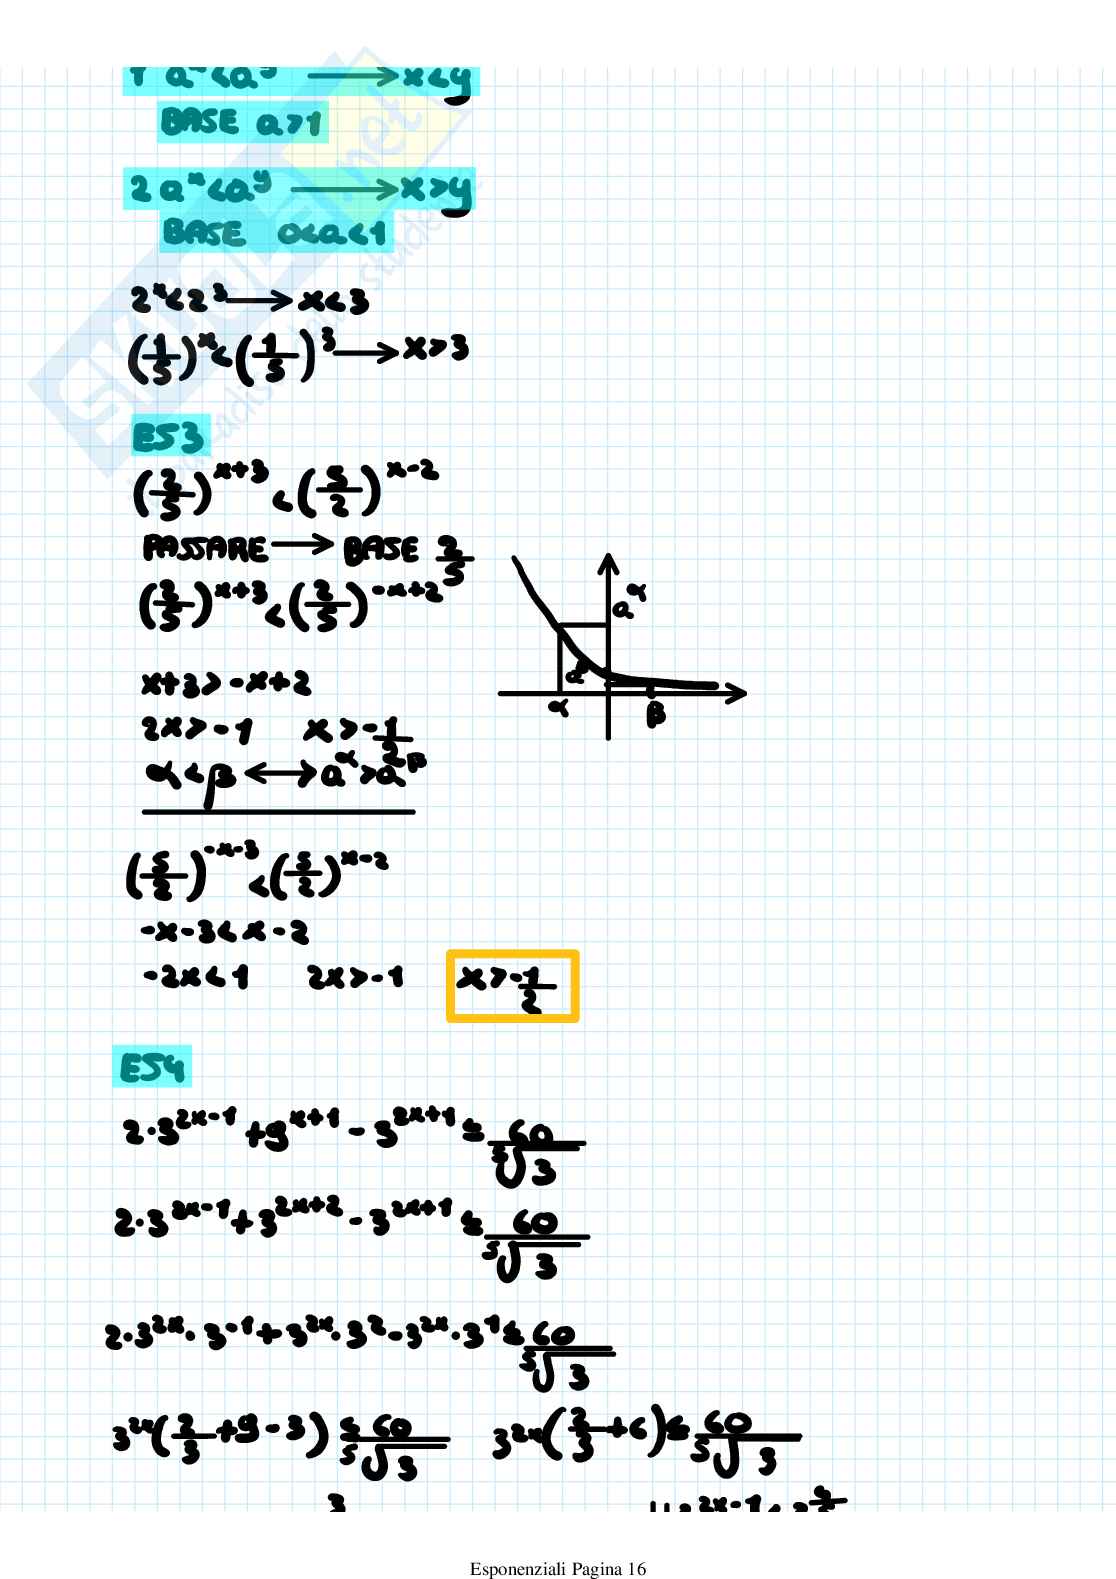 1 a^x<a^y → x<y
BASE a>1
2 a^x<a^y → x>y
BASE 0<a<1
2^x<2^3 → x<3
(1/5)^x<(1/5)^3 → x>3
ES3
(2/5)^(x+3) < (5/2)^(x-2)
PASSARE → BASE 2/5
(2/5)^(x+3) < (2/5)^(-x+2)
a^α
a^β
α
β
x+3>-x+2
2x>-1 x>-1/2
α<β ↔ a^α>a^β
(5/2)^(-x-3) < (5/2)^(x-2)
-x-3<x-2
-2x<1 2x>-1 x>-1/2
ES4
2·3^(2x-1)+9^(x+1)-3^(2x+1) ≤ 60/⁵√3
2·3^(2x-1)+3^(2x+2)-3^(2x+1) ≤ 60/⁵√3
2·3^(2x)·3^(-1)+3^(2x)·3^2-3^(2x)·3^1 ≤ 60/⁵√3
3^(2x)(2/3+9-3) ≤ 60/⁵√3 3^(2x)(2/3+6) ≤ 60/⁵√3
SKUOLA.net
Esponenziali Pagina 16